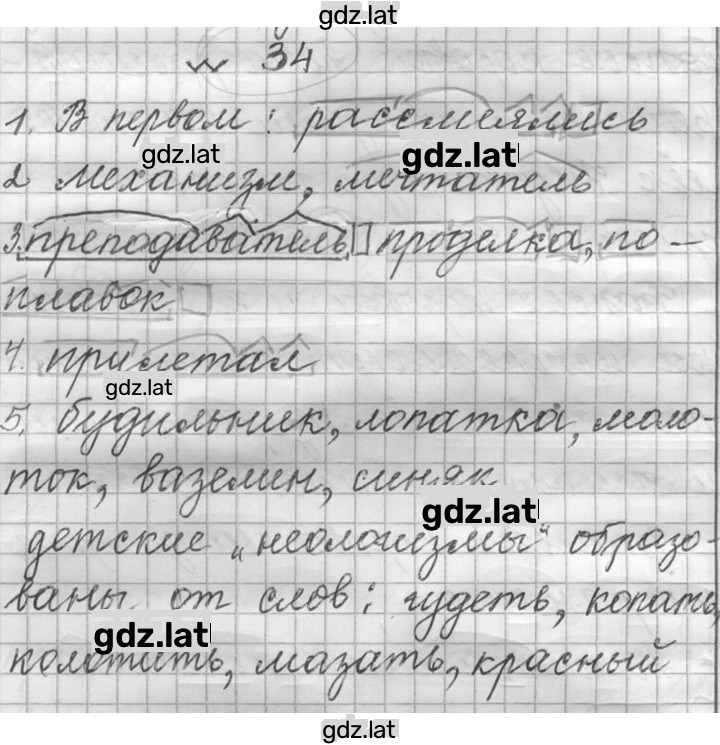 gdz.lat
№ 34
1. В первом: рассмеялись
gdz.lat
gdz.lat
2 механизм, мечтатель
3. преподаватель проделка, по-
плавок
4. прилетал
gdz.lat
5. будильник, лопатка, моло-
ток, вазелин, синяк
gdz.lat
детские „неологизмы" образо-
ваны от слов: гудеть, копать,
gdz.lat
колотить, мазать, красный
gdz.lat